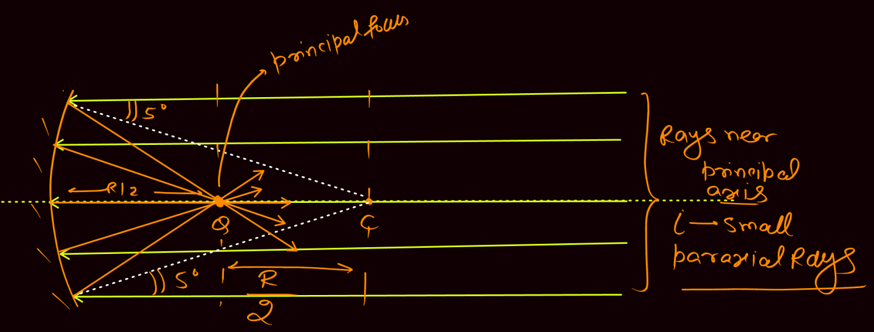 principal focus
5°
Rays near
principal
axis
R/2
Q
C
i → small
paraxial Rays
5°
R
2